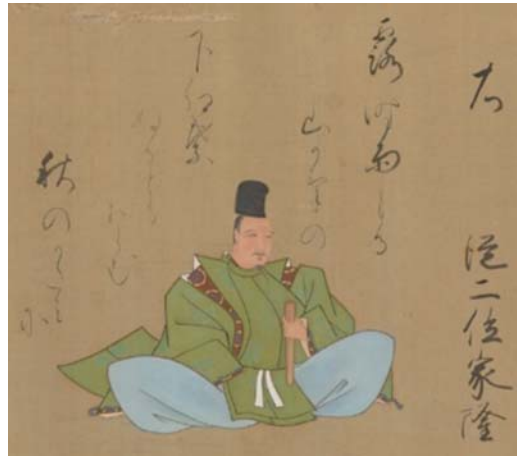 右
從二位家隆
露時雨もる
山かけの
下紅葉
ぬるとも
おらむ
秋のかたみに